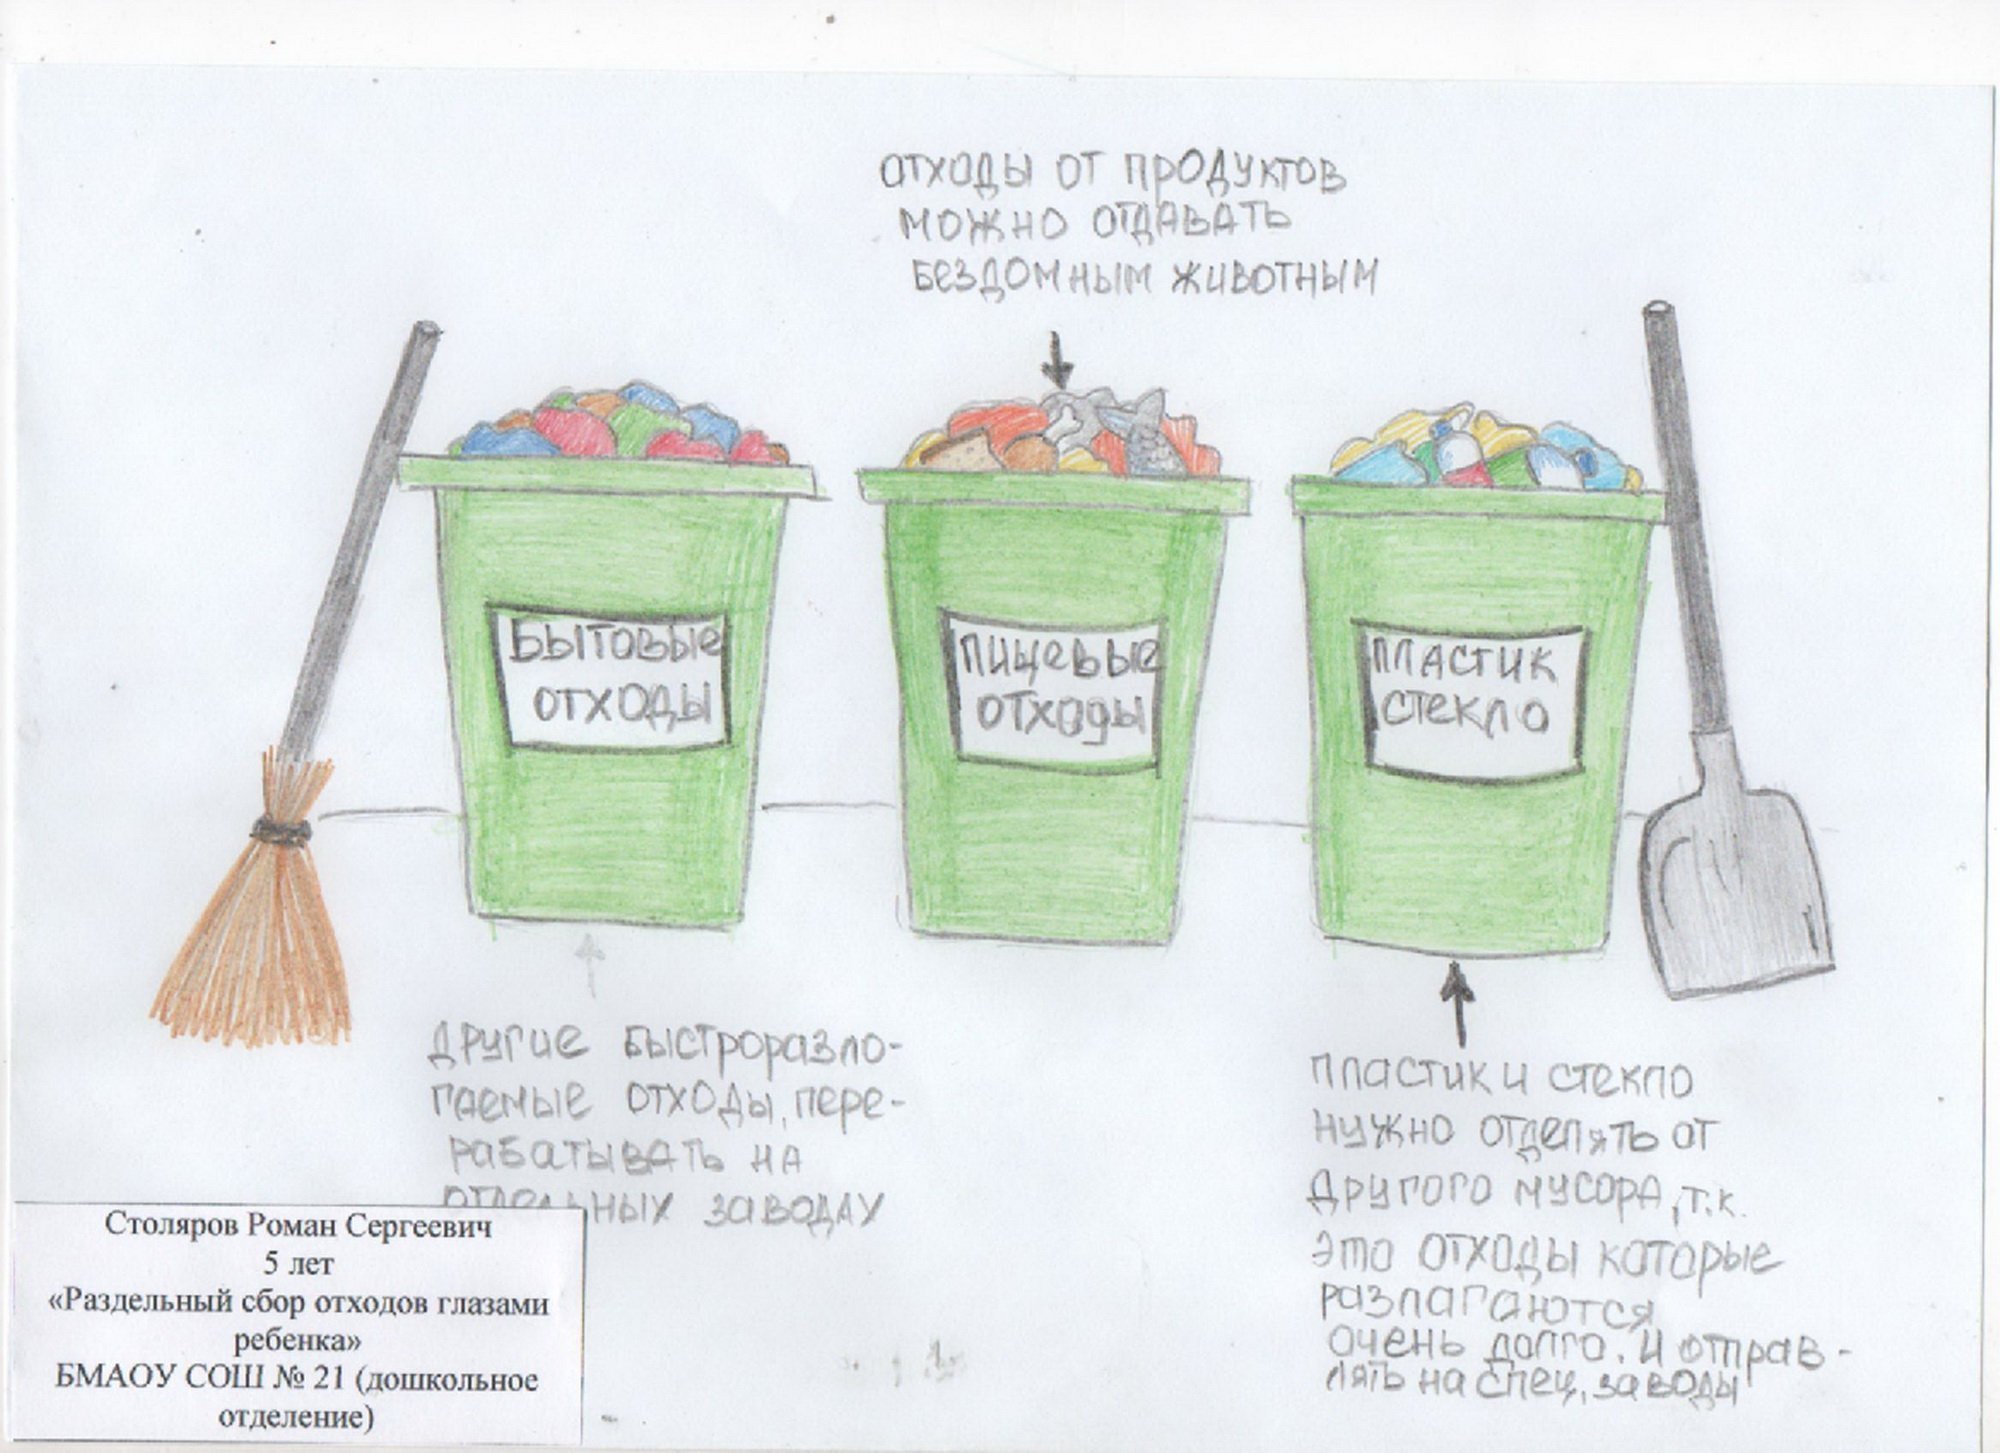 отходы от продуктов
можно отдавать
бездомным животным
Бытовые
отходы
Пищевые
отходы
Пластик
стекло
другие быстроразло-
гаемые отходы, пере-
рабатывать на
отдельных заводах
Пластик и стекло
нужно отделять от
другого мусора, т.к.
это отходы которые
разлагаются
очень долго. И отправ-
лять на спец, заводы
Столяров Роман Сергеевич
5 лет
«Раздельный сбор отходов глазами
ребенка»
БМАОУ СОШ № 21 (дошкольное
отделение)